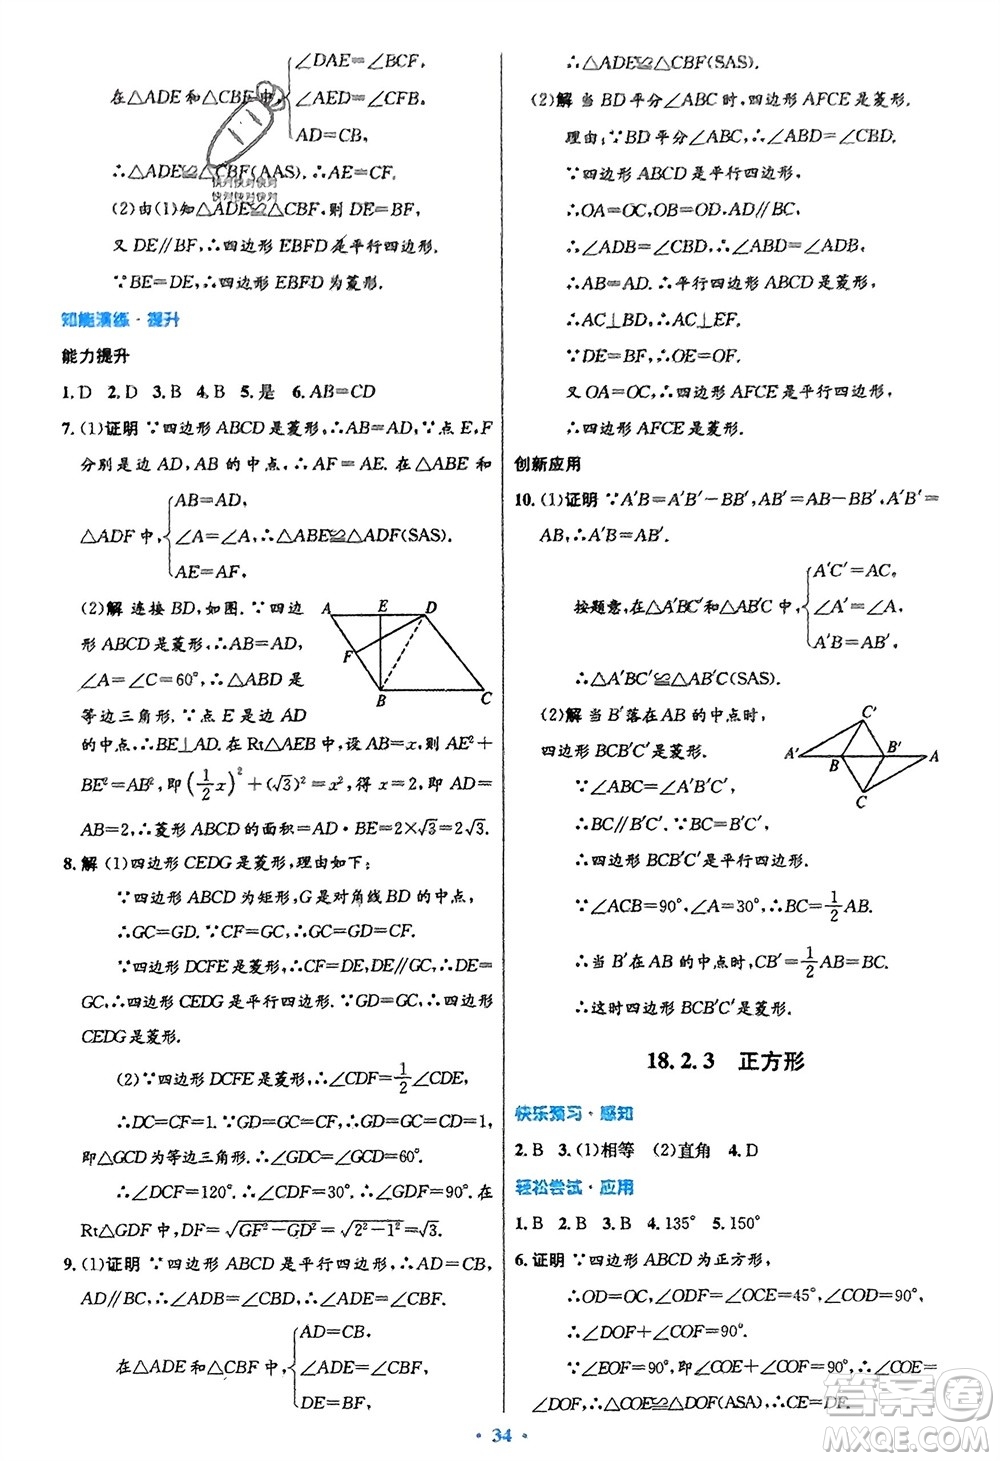 ∠DAE=∠BCF,
在△ADE和△CBF中, ∠AED=∠CFB,
AD=CB,
∴△ADE≌△CBF(AAS),∴AE=CF.
快对快对快对
快对快对快对
(2)由(1)知△ADE≌△CBF,则DE=BF,
又DE∥BF,∴四边形EBFD是平行四边形.
∵BE=DE,∴四边形EBFD为菱形.
知能演练·提升
能力提升
1.D 2.D 3.B 4.B 5.是 6.AB=CD
7.(1)证明 ∵四边形ABCD是菱形,∴AB=AD,∵点E,F
分别是边AD,AB的中点,∴AF=AE.在△ABE和
AB=AD,
△ADF中, ∠A=∠A,∴△ABE≌△ADF(SAS).
AE=AF,
(2)解 连接BD,如图.∵四边
形ABCD是菱形,∴AB=AD,
∠A=∠C=60°,∴△ABD是
等边三角形.∵点E是边AD
A E D
F
B C
的中点,∴BE⊥AD.在Rt△AEB中,设AB=x,则AE²+
BE²=AB²,即(1/2x)²+(√3)²=x²,得x=2,即AD=
AB=2,∴菱形ABCD的面积=AD·BE=2×√3=2√3.
8.解 (1)四边形CEDG是菱形,理由如下:
∵四边形ABCD为矩形,G是对角线BD的中点,
∴GC=GD.∵CF=GC,∴GD=GC=CF.
∵四边形DCFE是菱形,∴CF=DE,DE∥GC,∴DE=
GC,∴四边形CEDG是平行四边形.∵GD=GC,∴四边形
CEDG是菱形.
(2)∵四边形DCFE是菱形,∴CF=1/2CDE,
∴DC=CF=1.∵GD=GC=CF=1,∴GD=GC=DC=1,
即△GCD为等边三角形,∴∠GCD=60°.
∴∠DCF=120°,∴∠DFC=30°,∴∠GDF=90°.∴在
Rt△GDF中,DF=√(GF²-GD²)=√(2²-1²)=√3.
9.(1)证明 ∵四边形ABCD是平行四边形,∴AD=CB,
AD∥BC,∴∠ADB=∠CBD,∴∠ADE=∠CBF.
AD=CB,
在△ADE和△CBF中, ∠ADE=∠CBF,
DE=BF,
∴△ADE≌△CBF(SAS).
(2)解 当BD平分∠ABC时,四边形AFCE是菱形.
理由:∵BD平分∠ABC,∴∠ABD=∠CBD.
∵四边形ABCD是平行四边形,
∴OA=OC,OB=OD,AD∥BC,
∴∠ADB=∠CBD,∴∠ABD=∠ADB,
∴AB=AD.∴平行四边形ABCD是菱形,
∴AC⊥BD,∴AC⊥EF.
∵DE=BF,∴OE=OF.
又OA=OC,∴四边形AFCE是平行四边形,
∴四边形AFCE是菱形.
创新应用
10.(1)证明 ∵A′B=A′B′-BB′,AB′=AB-BB′,A′B′=
AB,∴A′B=AB′.
A′C′=AC,
按题意,在△A′BC′和△AB′C中, ∠A′=∠A,
A′B=AB′,
∴△A′BC′≌△AB′C(SAS).
(2)解 当B′落在AB的中点时,
四边形BCB′C′是菱形.
∵∠ABC=∠A′B′C′,
∴BC∥B′C′.∵BC=B′C′,
C′
A′ B B′ A
C
∴四边形BCB′C′是平行四边形.
∵∠ACB=90°,∠A=30°,∴BC=1/2AB.
∴当B′在AB的中点时,CB′=1/2AB=BC.
∴这时四边形BCB′C′是菱形.
18.2.3 正方形
快乐预习·感知
2.B 3.(1)相等 (2)直角 4.D
轻松尝试·应用
1.B 2.B 3.B 4.135° 5.150°
6.证明 ∵四边形ABCD为正方形,
∴OD=OC,∠ODF=∠OCE=45°,∠COD=90°,
∴∠DOF+∠COF=90°.
∵∠EOF=90°,即∠COE+∠COF=90°,∴∠COE=
∠DOF,∴△COE≌△DOF(ASA),∴CE=DF.
·34·
答案圈
MXQE.COM